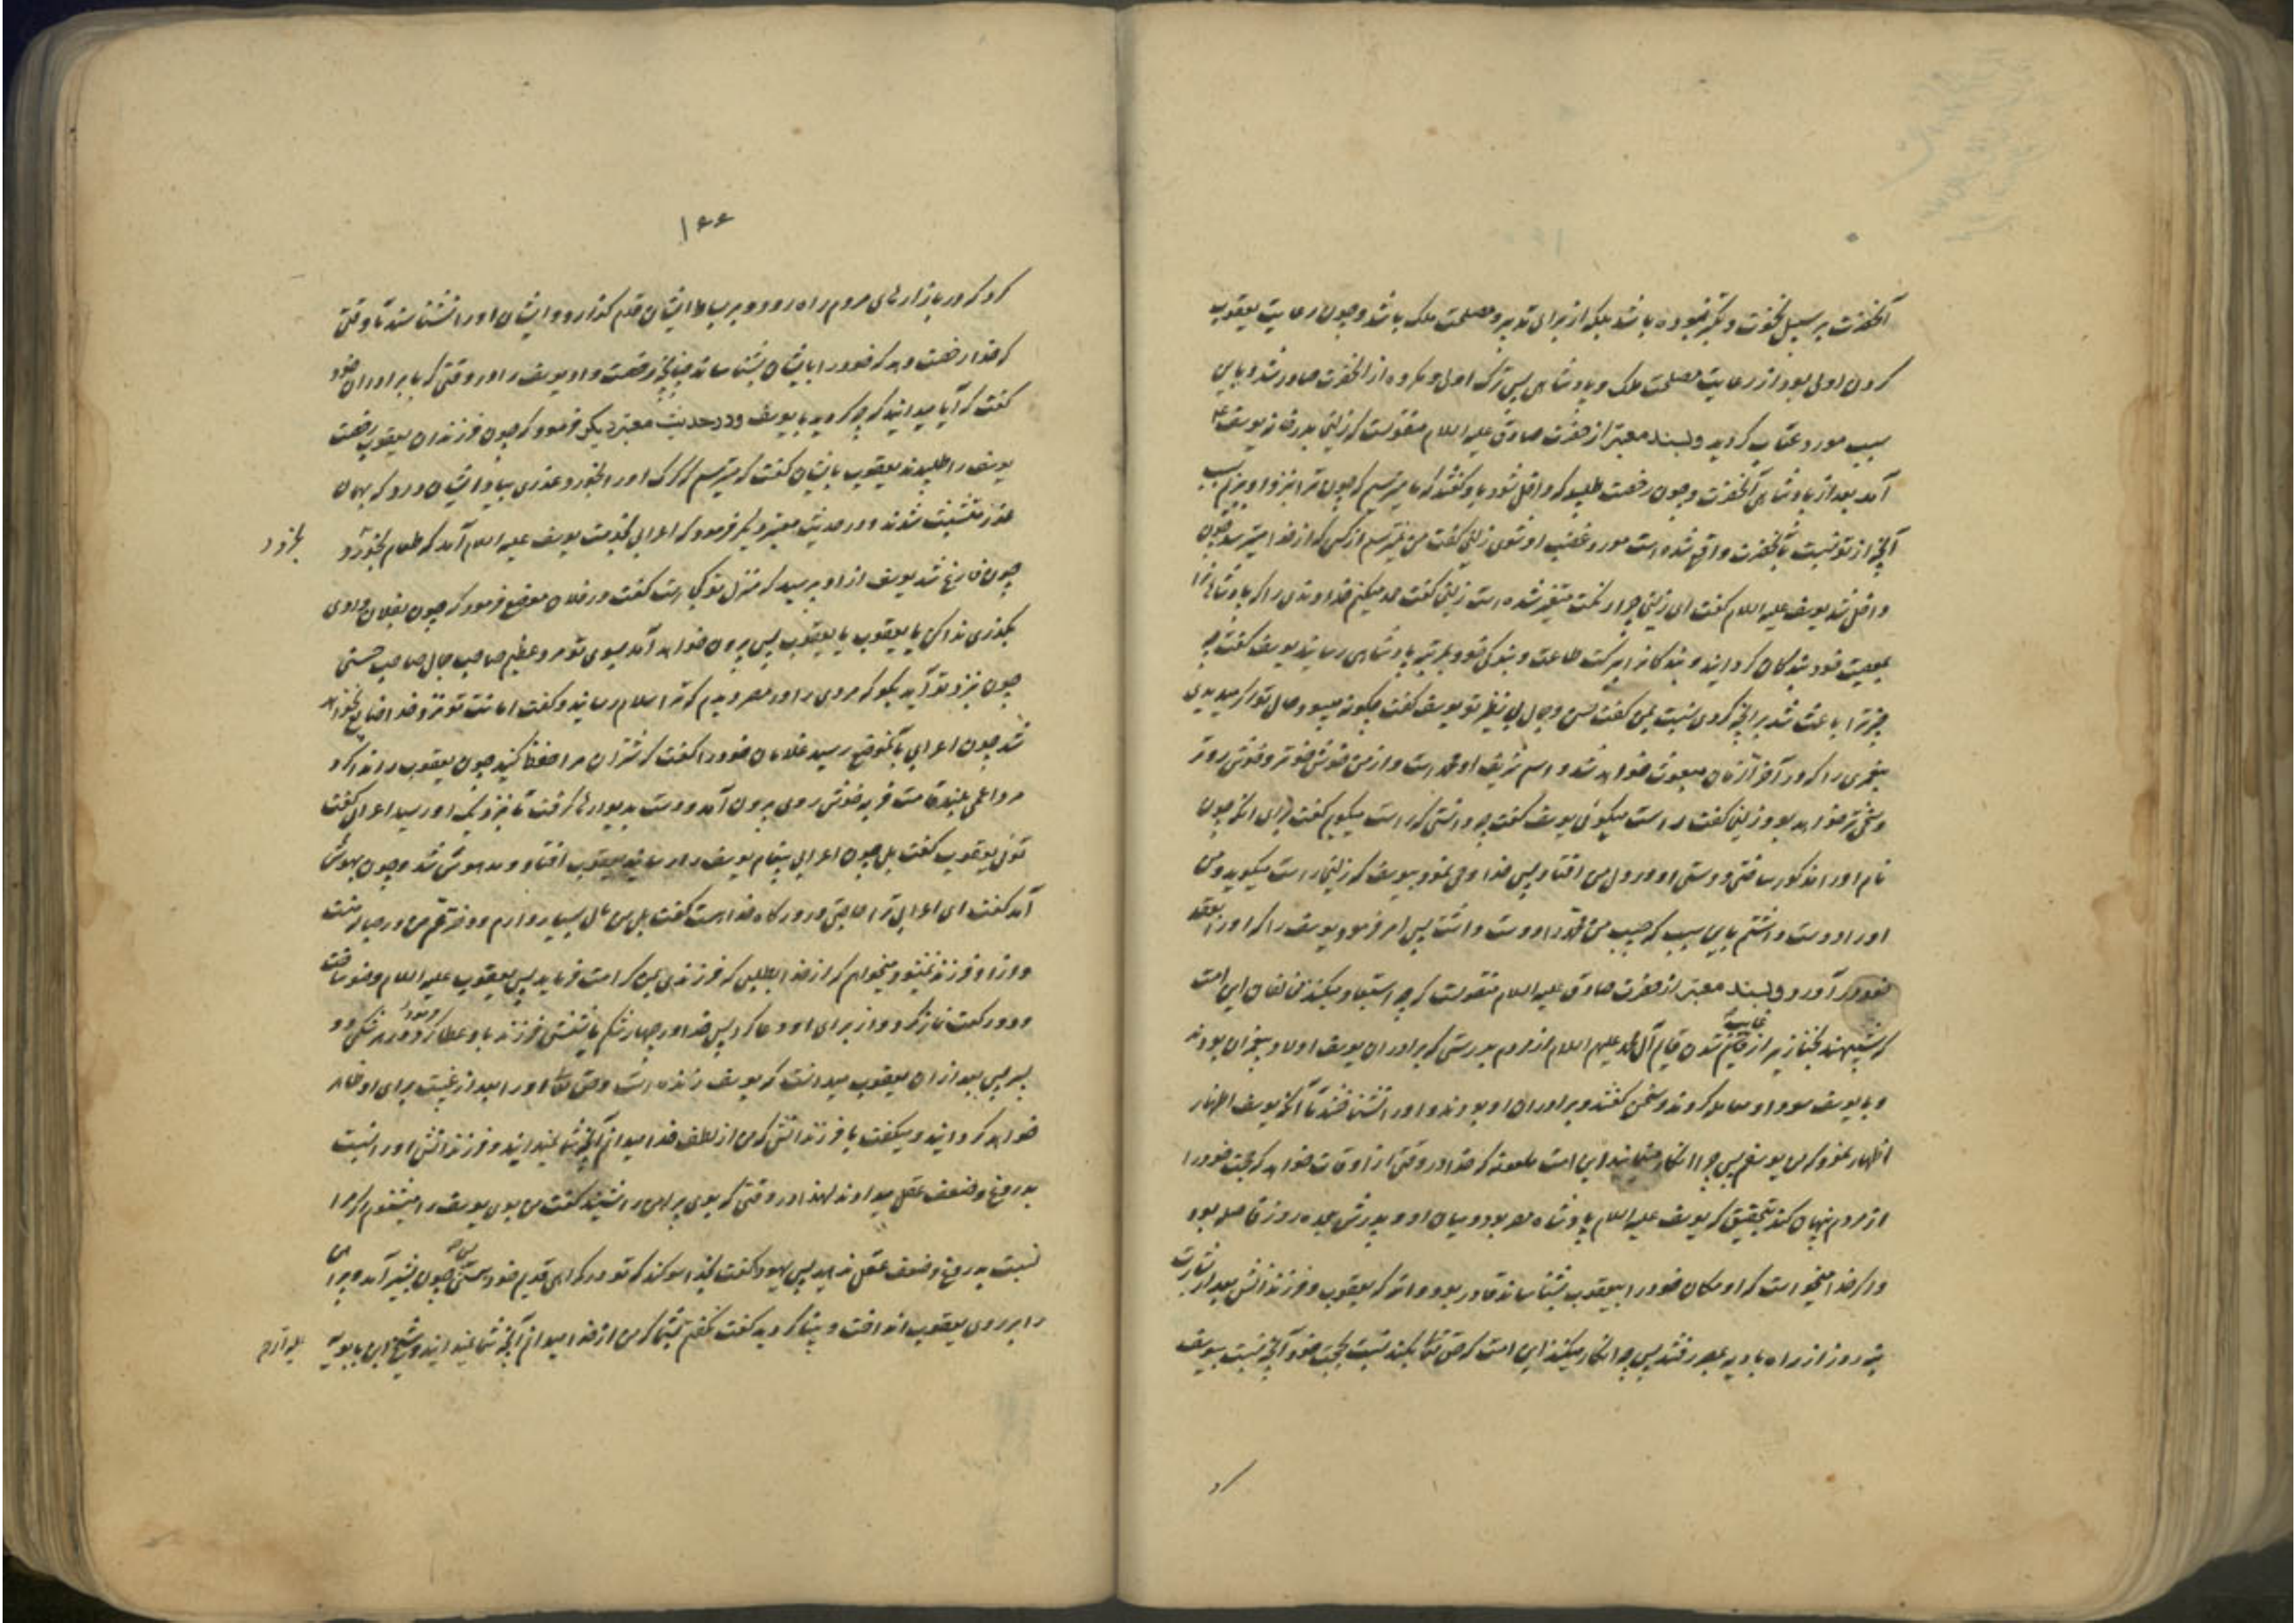 آنحضرت بر سبیل نخوت و تکبر نبوده باشد بلکه از برای تدبیر و مصلحت ملک باشد و چون رعایت یعقوب
کردن اولی بود از رعایت مصلحت ملک و پادشاهی پس ترک اولی و مکروه از آنحضرت صادر شد و باین
سبب مورد عتاب گردید و بسند معتبر از حضرت صادق علیه السلام منقولست که زلیخا بدر خانه یوسف ع
آمد بعد از پادشاهی آنحضرت و چون رخصت طلبید که داخل شود باو گفتند که ما میترسیم که چون ترا بنزد او بریم بسبب
آنچه از تو نسبت بآنحضرت واقع شده است مورد غضب او شوی زلیخا گفت من نمیترسم از کسی که از خدا میترسد چون
داخل شد یوسف علیه السلام گفت ای زلیخا چرا رنگت متغیر شده است زلیخا گفت حمد میکنم خداوندی را که پادشاهان را
بمعصیت خود بندگان گردانید و بندگانرا ببرکت طاعت و بندگی خود بمرتبه پادشاهی رسانید یوسف گفت چه
چیز ترا باعث شد بر آنچه کردی نسبت بمن گفت حسن و جمال بی نظیر تو یوسف گفت چگونه میبود حال تو اگر میدیدی
پیغمبری را که در آخر الزمان مبعوث خواهد شد و اسم شریف او محمد است و از من خوش خوتر و خوش روتر
و سخی تر خواهد بود زلیخا گفت راست میگوئی یوسف گفت چه دانستی که راست میگویم گفت برای آنکه چون
نام او را مذکور ساختی دوستی او در دل من افتاد پس خدا وحی نمود بیوسف که زلیخا راست میگوید و من
او را دوست داشتم باین سبب که حبیب من محمد را دوست داشت پس امر فرمود یوسف را که او را بعقد
خود درآورد و بسند معتبر از حضرت صادق علیه السلام منقولست که چه استبعاد میکنند مخالفان این امت
که شبیهند بخنازیر از غایب شدن قایم آل محمد علیهم السلام از مردم بدرستی که برادران یوسف اولاد پیغمبران بودند
و با یوسف سودا و معامله کردند و سخن گفتند و برادران او بودند و او را نشناختند تا آنکه یوسف اظهار
اظهار نمود که من یوسفم پس چرا انکار مینمایند این امت ملعونه که خدا در وقتی از اوقات خواهد که حجت خود را
از مردم پنهان کند بتحقیق که یوسف علیه السلام پادشاه مصر بود و میان او و پدرش هجده روز فاصله بود
و اگر خدا میخواست که او مکان خود را بیعقوب بشناساند قادر بود والله که یعقوب و فرزندانش بعد از بشارت
نه روز از راه بادیه بمصر رفتند پس چرا انکار میکنند این امت که حق تعالی بکند نسبت بحجت خود آنچه نسبت بیوسف
کرد
۱۶۶
کرد که در بازارهای مردم راه رود و بر بساط ایشان قدم گذارد و ایشان او را نشناسند تا وقتی
که خدا رخصت دهد که خود را بایشان بشناساند چنانچه رخصت داد یوسف را در وقتی که با برادران خود
گفت که آیا میدانید که چه کردید با یوسف و در حدیث معتبر دیگر فرمود که چون فرزندان یعقوب رخصت
یوسف را طلبیدند یعقوب بایشان گفت که میترسم که گرگ او را بخورد عذری بیاد ایشان درآورد که بهمان
عذر متشبث شدند و در حدیث معتبر دیگر فرمود که اعرابی بخدمت یوسف علیه السلام آمد که طعام بخرد و
بخرد
چون فارغ شد یوسف از او پرسید که منزل تو کجاست گفت در فلان موضع فرمود که چون بفلان وادی
بگذری ندا کن یا یعقوب یا یعقوب پس بیرون خواهد آمد بسوی تو مرد عظیم صاحب جمال صاحب حسنی
چون بنزد تو آید بگو که مردی را در مصر دیدم که ترا سلام رسانید و گفت امانت تو نزد خدا ضایع نخواهد
شد چون اعرابی بآنموضع رسید غلامان خود را گفت که شتران مرا حفظ کنید چون یعقوب را ندا کرد
مرد اعمی بلند قامت فربه خوش روی بیرون آمد و دست بدیوارها گرفت تا بنزدیک او رسید اعرابی گفت
توئی یعقوب گفت بلی چون اعرابی پیغام یوسف را رسانید یعقوب افتاد و مدهوش شد و چون بهوش
آمد گفت ای اعرابی ترا حاجتی در درگاه خدا هست گفت بلی من مال بسیار دارم و دختر عم من در حباله منست
و از او فرزندم نمیشود میخواهم که از خدا بطلبی که فرزندی بمن کرامت فرماید پس یعقوب علیه السلام وضو ساخت
و دو رکعت نماز کرد و از برای او دعا کرد پس خدا در چهار شکم یا شش شکم فرزند باو عطا کرد و در هر شکمی دو
پسر پس بعد از آن یعقوب میدانست که یوسف زنده است و حق تعالی او را بعد از غیبت برای او ظاهر
خواهد گردانید و میگفت با فرزندانش که من از لطف خدا میدانم آنچه شما نمیدانید و فرزندانش او را نسبت
بدروغ و ضعف عقل میدادند لهذا در وقتی که بوی پیراهن را شنید گفت من بوی یوسف را میشنوم اگر مرا
نسبت بدروغ و ضعف عقل ندهید پس یهودا گفت بخدا سوگند که تو در گمراهی قدیم خود هستی پس چون بشیر آمد و پیراهن
را بر روی یعقوب انداخت و بینا گردید گفت نگفتم بشما که من از خدا میدانم آنچه شما نمیدانید و شیخ ابن بابویه
علیه الرحمه